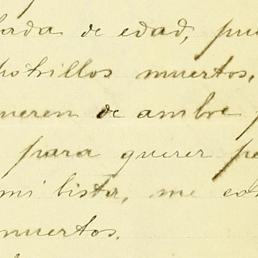 lada de edad, pue
potrillos muertos,
mueren de ambre y
para querer pe
mi lista, me co
muertos.